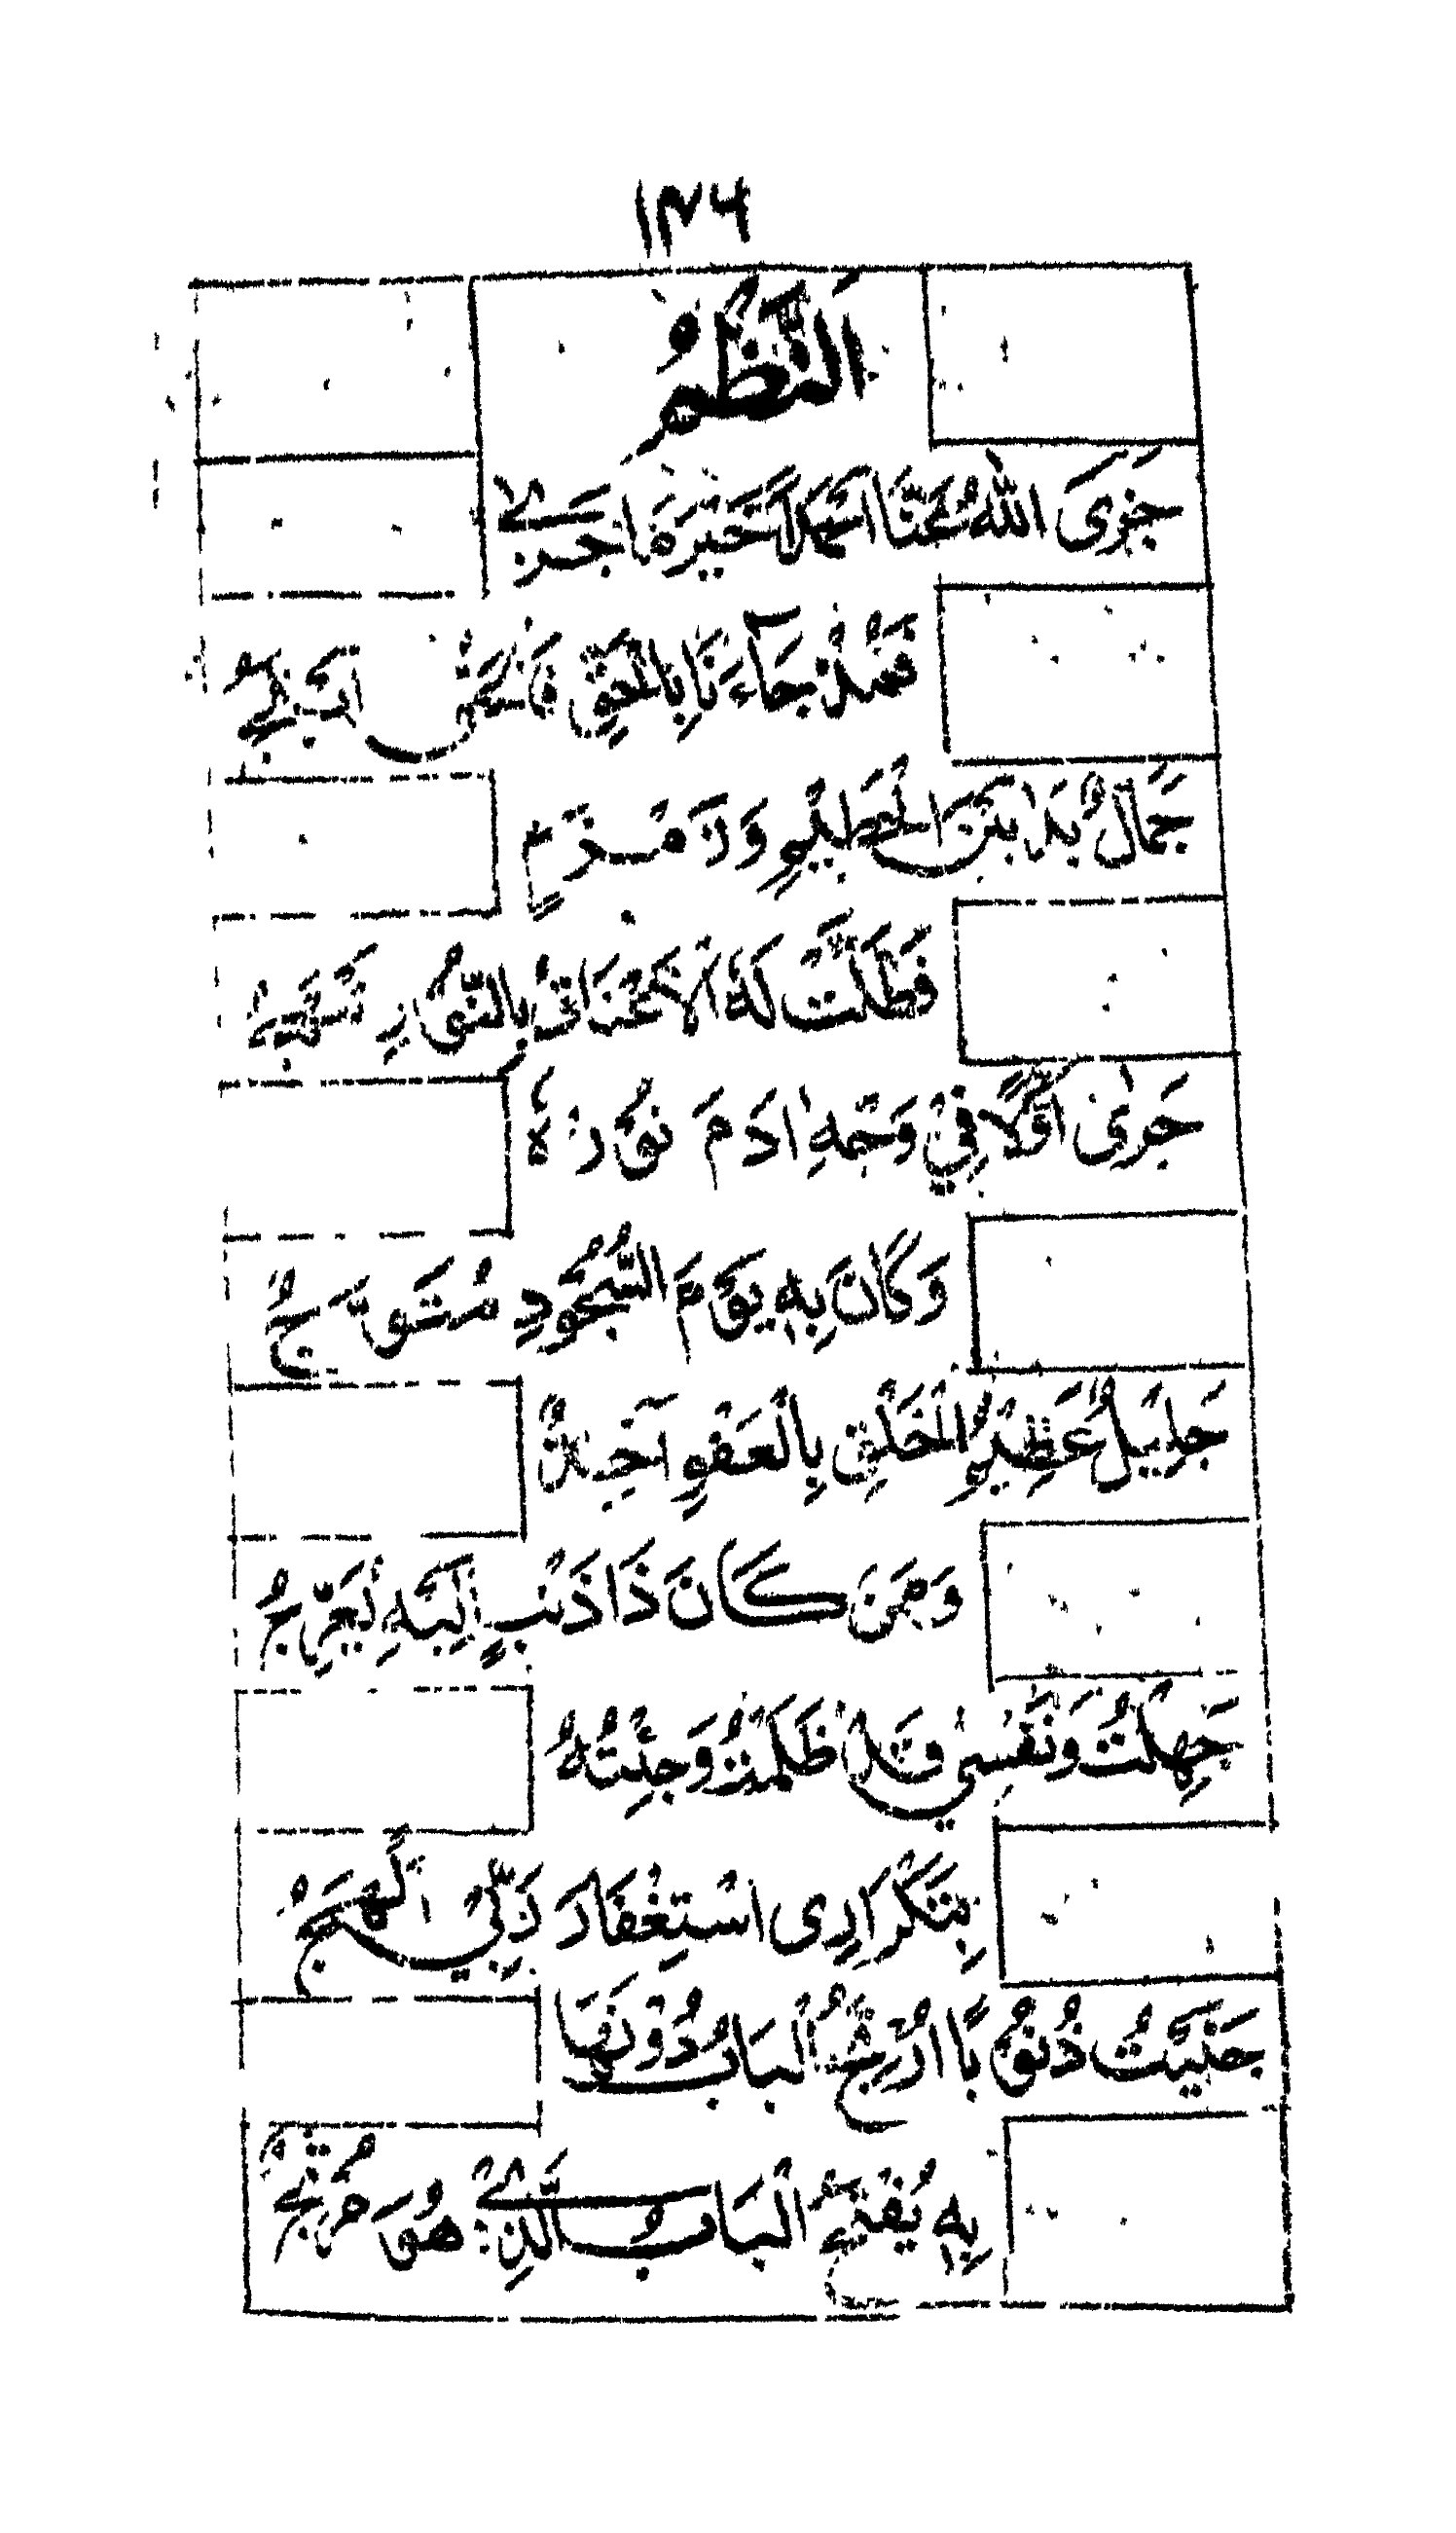 ١٣٦
اَلنَّظْمُ
جَزَى اللّٰهُ عَنَّا اَحْمَدًا خَيْرَ مَا جَزٰى
فَقَدْ جَاءَنَا بِالْحَقِّ فَالْحَقُّ اَبْلَجُ
جَمَالٌ بَدَا بَيْنَ الْحَطِيْمِ وَزَمْزَمٍ
فَظَلَّتْ لَهُ الْاَعْنَاقُ بِالنُّوْرِ تَبْهَجُ
جَرٰى اَوَّلًا فِيْ وَجْهِ اٰدَمَ نُوْرُهُ
وَكَانَ بِهِ يَوْمَ السُّجُوْدِ مُتَوَّجُ
جَلِيْلٌ عَظِيْمُ الْخُلُقِ بِالْعَفْوِ آخِذٌ
وَمَنْ كَانَ ذَا ذَنْبٍ اِلَيْهِ يُعَرِّجُ
جَهِلْتُ وَنَفْسِيْ قَدْ ظَلَمْتُ وَجِئْتُهُ
بِتَكْرَارِى اسْتِغْفَارَ رَبِّيْ اَلْهَجُ
جَنَيْتُ ذُنُوْبًا اُرْتِجُ الْبَابُ دُوْنَهَا
بِهِ يُفْتَحُ الْبَابُ الَّذِيْ هُوَ مُرْتَجُ